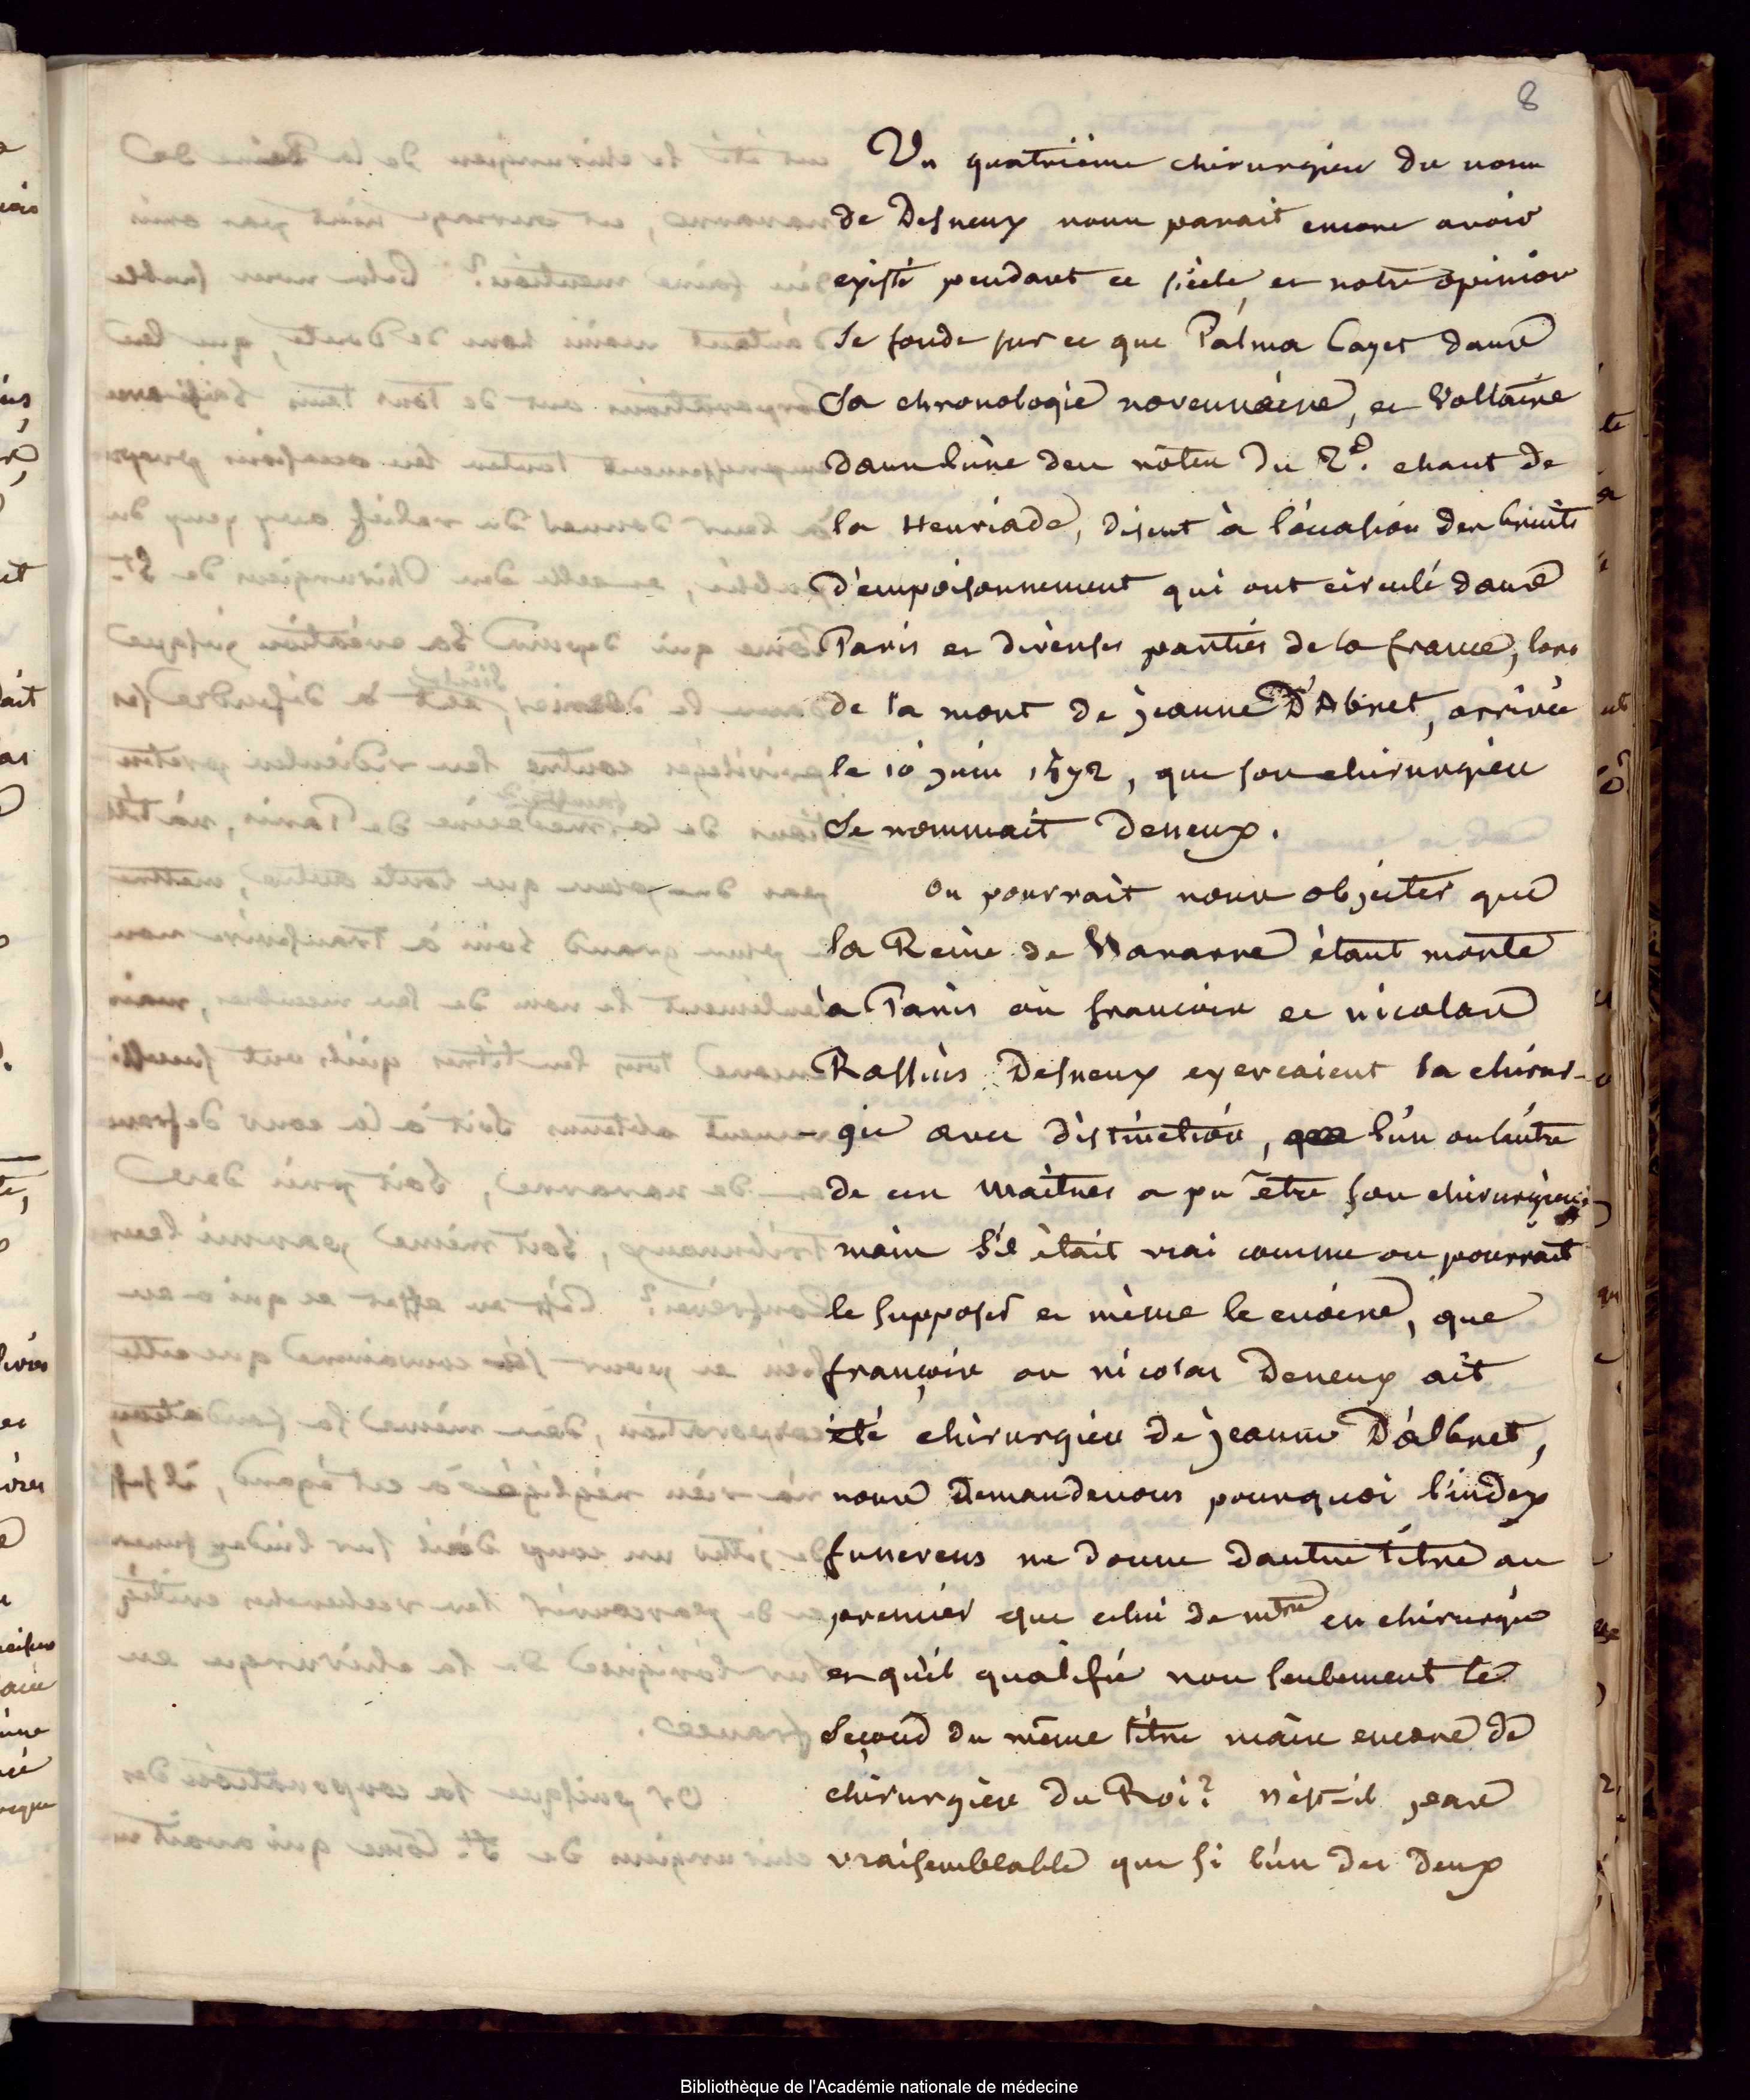 8
Un quatrième chirurgien du nom
de Desneux nous parait encore avoir
existé pendant ce siècle, et notre opinion
se fonde sur ce que Palma Cayet dans
sa chronologie novennaire, et Voltaire
dans l'une des notes du 2e. chant de
la Henriade, disent à l'occasion des bruits
d'empoisonnement qui ont circulé dans
Paris et diverses parties de la france, lors
de la mort de jeanne D'Albret, arrivée
le 10 juin 1572, que son chirurgien
se nommait Deneux.
on pourrait nous objecter que
la Reine de Navarre étant morte
à Paris où francois et nicolas
Rassius Desneux exercaient la chirur-
-gie avec distinction, l'un ou l'autre
de ces Maîtres a pu être son chirurgien;
mais s'il était vrai comme on pourrait
le supposer et même le croire, que
françois ou nicolas Deneux ait
été chirurgien de jeanne D'albret,
nous Demanderons pourquoi l'index
funereus ne donne d'autre titre au
premier que celui de mtre en chirurgie
et qu'il qualifie non seulement le
second du même titre mais encore de
chirurgien du Roi? n'est-il pas
vraisemblable que si l'un des deux
Bibliothèque de l'Académie nationale de médecine